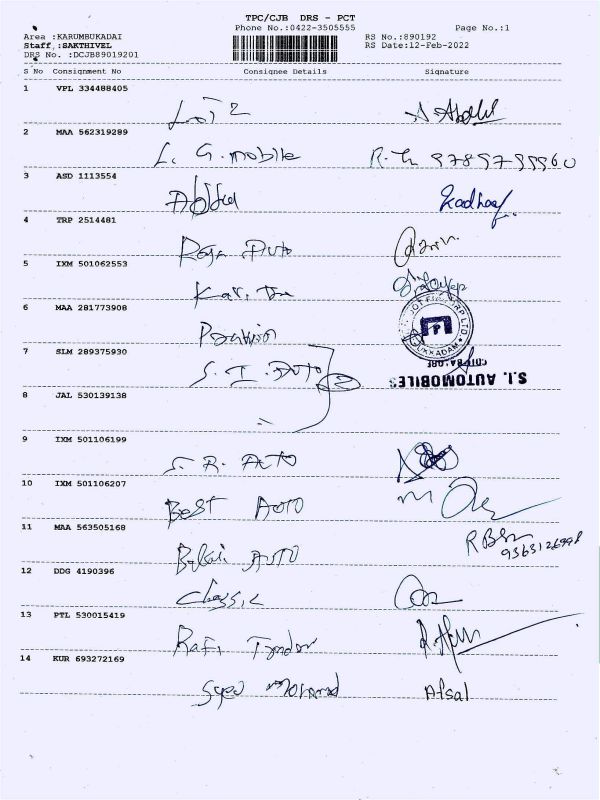 TPC/CJB DRS - PCT
Phone No.:0422-3505555 Page No.:1
Area :KARUMBUKADAI RS No.:890192
Staff :SAKTHIVEL RS Date:12-Feb-2022
DRS No. :DCJB89019201
S No Consignment No Consignee Details Signature
1 VPL 334488405
2 MAA 562319289
L. G. mobile
3 ASD 1113554
4 TRP 2514481
Raja Auto
5 IXM 501062553
6 MAA 281773908
7 SLM 289375930
S. I. Auto 2
S.I. AUTOMOBILES
8 JAL 530139138
9 IXM 501106199
S. R. Auto
10 IXM 501106207
Best Auto
11 MAA 563505168
AUTO
12 DDG 4190396
Classic
13 PTL 530015419
Rafi
14 KUR 693272169
Syed Mohamed Afsal